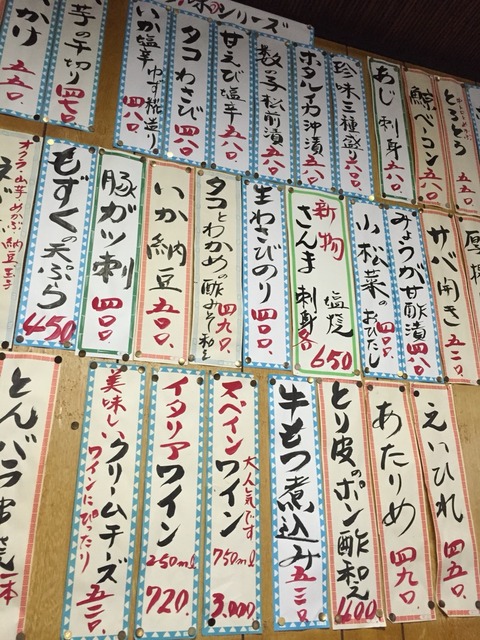 珍味シリーズ
とろろう
五五〇.
鯨ベーコン
五八〇.
あじ刺身
六八〇.
珍味三種盛り
六八〇.
ホタルイカ沖漬
五八〇.
数の子松前漬
五八〇.
甘えび塩辛
五八〇.
タコわさび
四八〇.
いか塩辛 ゆず糀造り
四八〇.
芋の千切り
四七〇.
いかけ
五五〇.
サバ開き
五二〇.
みょうが甘酢漬
四八〇.
小松菜の
おひたし
四〇〇.
新物
さんま
塩焼
刺身各
650
生わさびのり
四〇〇.
タコとわかめの酢みそ和え
四九〇.
いか納豆
五〇〇.
豚ガツ刺
四〇〇.
もずくの天ぷら
450
オクラ・山芋・めかぶ・納豆・玉子
えいひれ
四五〇.
あたりめ
四九〇.
とり皮のポン酢和え
400
牛もつ煮込み
五二〇.
スペインワイン
大人気です
750ml
3,000.
イタリアワイン
250ml
720.
美味しいクリームチーズ
ワインにぴったり
五二〇.
とんバラ串焼
一本